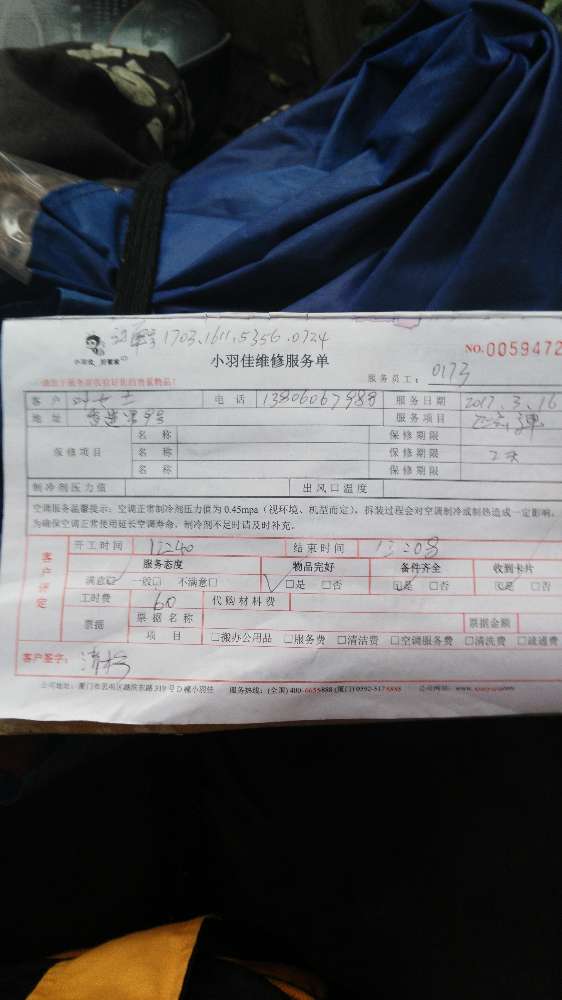 订单号 1703.1611.5356.0724
小羽佳 好管家
小羽佳维修服务单
NO.0059472
服务员工： 0173
客户 电话 13806067988 服务日期 2017.3.16
地址 服务项目
名称 保修期限
保修项目 名称 保修期限
名称 保修期限
制冷剂压力值 出风口温度
空调服务温馨提示：空调正常制冷剂压力值为 0.45mpa（视环境、机型而定），拆装过程会对空调制冷或制热造成一定影响，
为确保空调正常使用延长空调寿命，制冷剂不足时请及时补充。
客户评定
开工时间 12240 结束时间
服务态度 物品完好 备件齐全 收到卡片
满意□ 一般□ 不满意□ □是 □否 □是 □否 □是 □否
工时费 60 代购材料费
票据 票据名称 票据金额
项目 □搬办公用品 □服务费 □清洁费 □空调服务费 □清洗费 □疏通费
客户签字：
服务热线：(全国) 400-6655888 (厦门) 0592-5175888 公司网站：